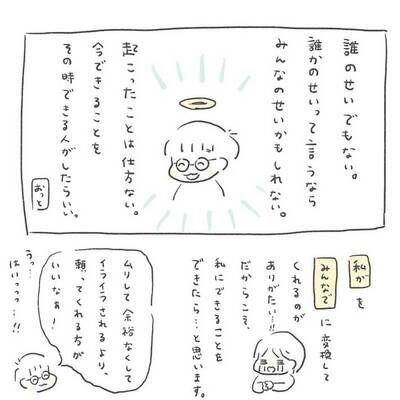 誰のせいでもない。
誰かのせいって言うなら
みんなのせいかもしれない。
起こったことは仕方ない。
今できることを
その時できる人がしたらいい。
おっと
私が を
みんなで に変換して
くれるのが
ありがたい…!!
だからこそ、
私にできることを
できたら…と思います。
ムリして余裕なくして
イライラされるより、
頼ってくれる方が
いいなぁ!
うっ…
はいっっっ…!!